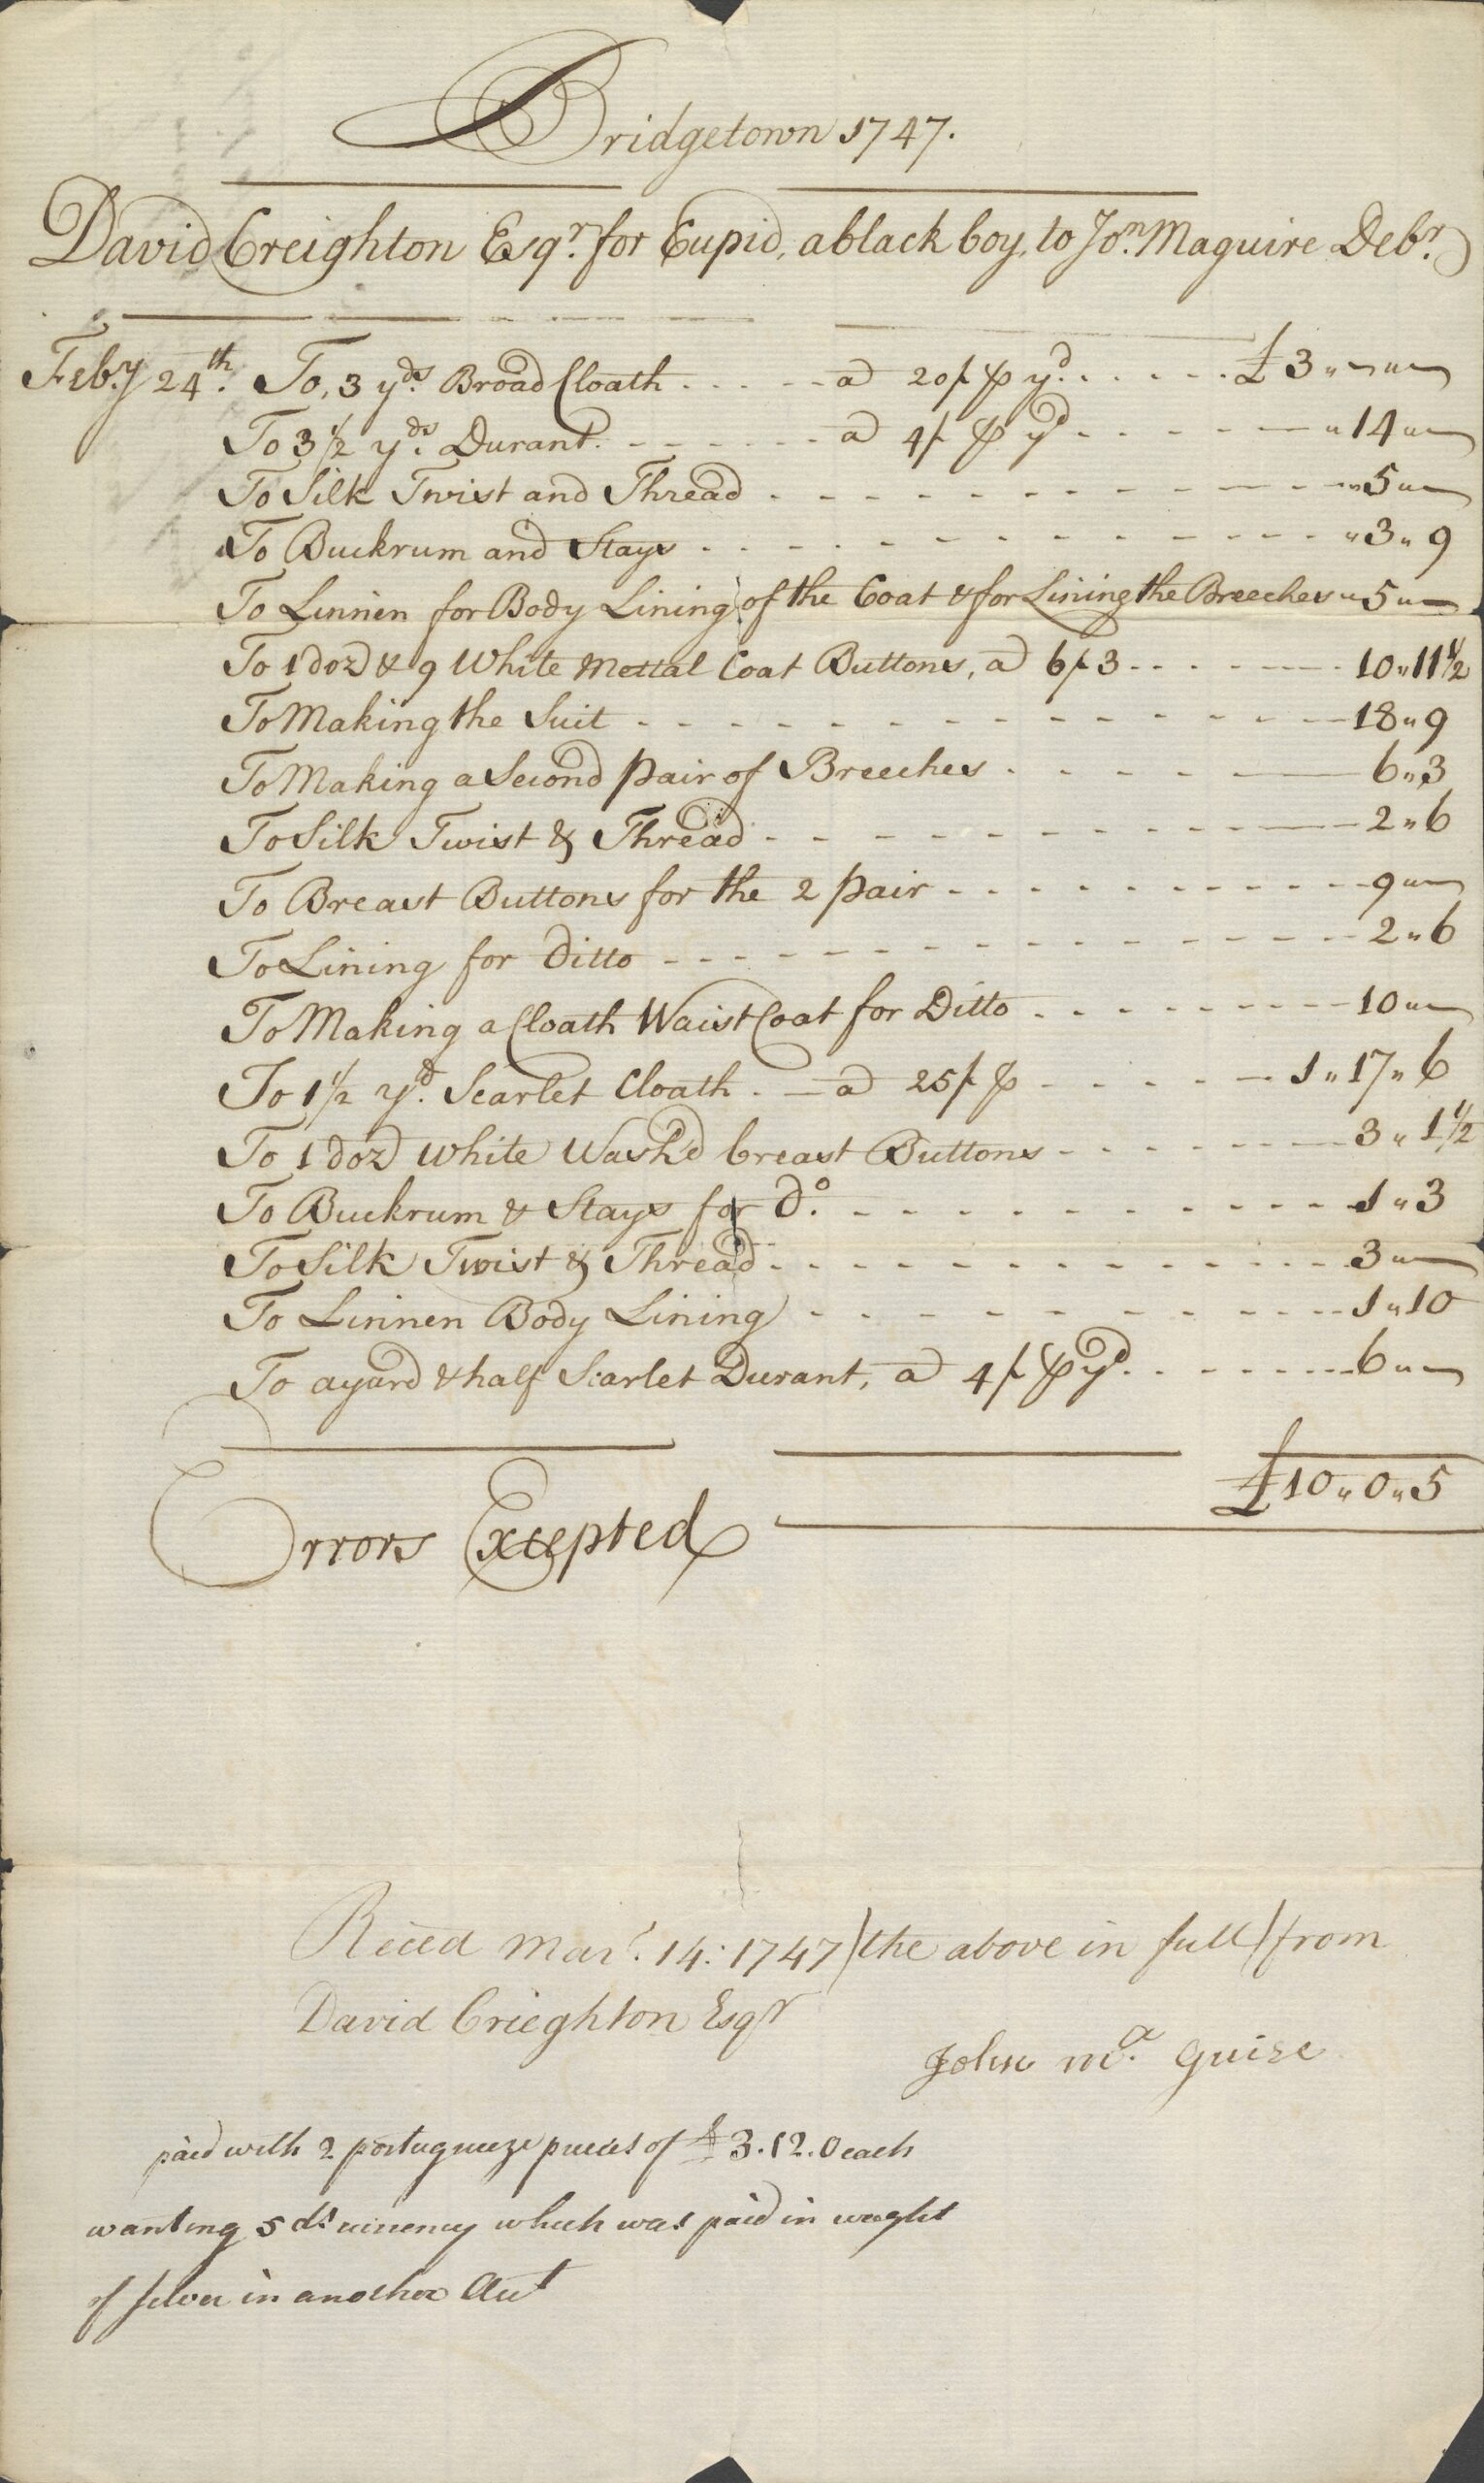 Bridgetown 1747.
David Creighton Esqr. for Cupid, a black boy, to Jon. Maguire Debr.
Feby 24th. To, 3 yds. Broad Cloath ..... a 20/ ⅌ yd. ...... £3 " — " —
To 3 1/2 yds. Durant. ------ a 4/ ⅌ yd ------ " 14 " —
To Silk Twist and Thread ------------ " 5 " —
To Buckrum and Stays ------------ " 3 " 9
To Linnen for Body Lining of the Coat & for Lining the Breeches " 5 " —
To 1 doz & 9 White Mettal Coat Buttons, a 6/3 ------ 10 " 11 1/2
To Making the Suit ------------ 18 " 9
To Making a Second pair of Breeches ------ 6 " 3
To Silk Twist & Thread ------------ 2 " 6
To Breast Buttons for the 2 pair ------------ 9 " —
To Lining for Ditto ------------ 2 " 6
To Making a Cloath WaistCoat for Ditto ------ 10 " —
To 1 1/2 yd. Scarlet Cloath. — a 25/ ⅌ ------ 1 " 17 " 6
To 1 doz White Wash'd breast Buttons ------ 3 " 1 1/2
To Buckrum & Stays for Do. ------------ 1 " 3
To Silk Twist & Thread ------------ 3 " —
To Linnen Body Lining ------------ 1 " 10
To a yard & half Scarlet Durant, a 4/ ⅌ yd. ------ 6 " —
£10 " 0 " 5
Errors Excepted
Reced Mar. 14: 1747 / the above in full / from
David Crieghton Esqr
John Ma. Guire
paid with 2 portugueeze pieces of £3.12.0 each
wanting 5 ds currency which was paid in weight
of silver in another Acct